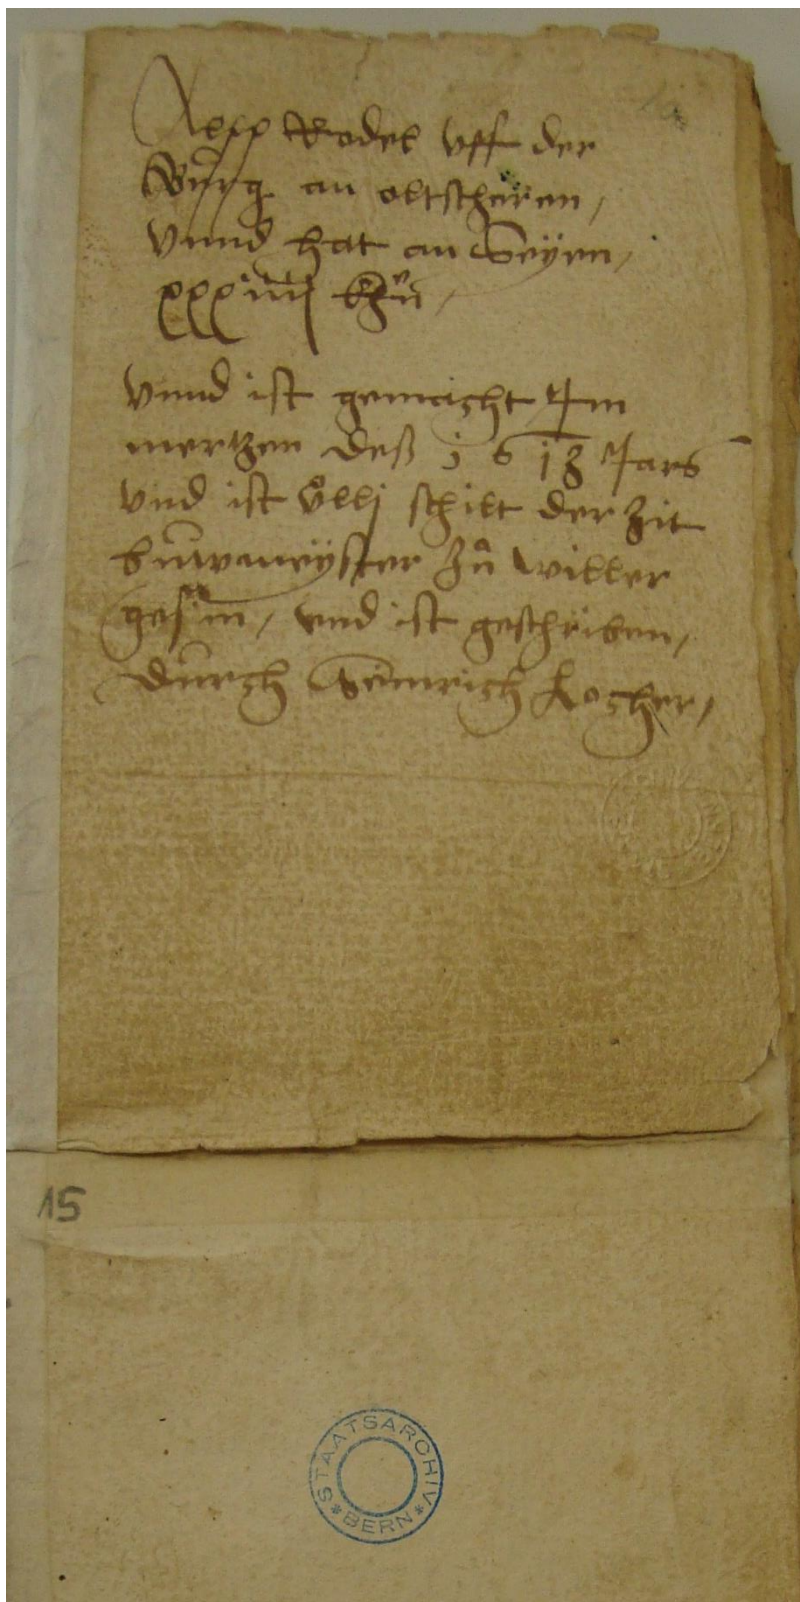 Alpp Rodel uff der
Burg an oltscheren,
Unnd hat an Seÿen,
xxxiiij khü̈,
Unnd ist gemacht Im
mertzen deß 1613 Jars
Und ist ůlli schilt der Zit
buwmeÿster Zů willer
gesin, und ist geschriben,
durch Heinrich kocher,
15
STAATSARCHIV
* BERN *